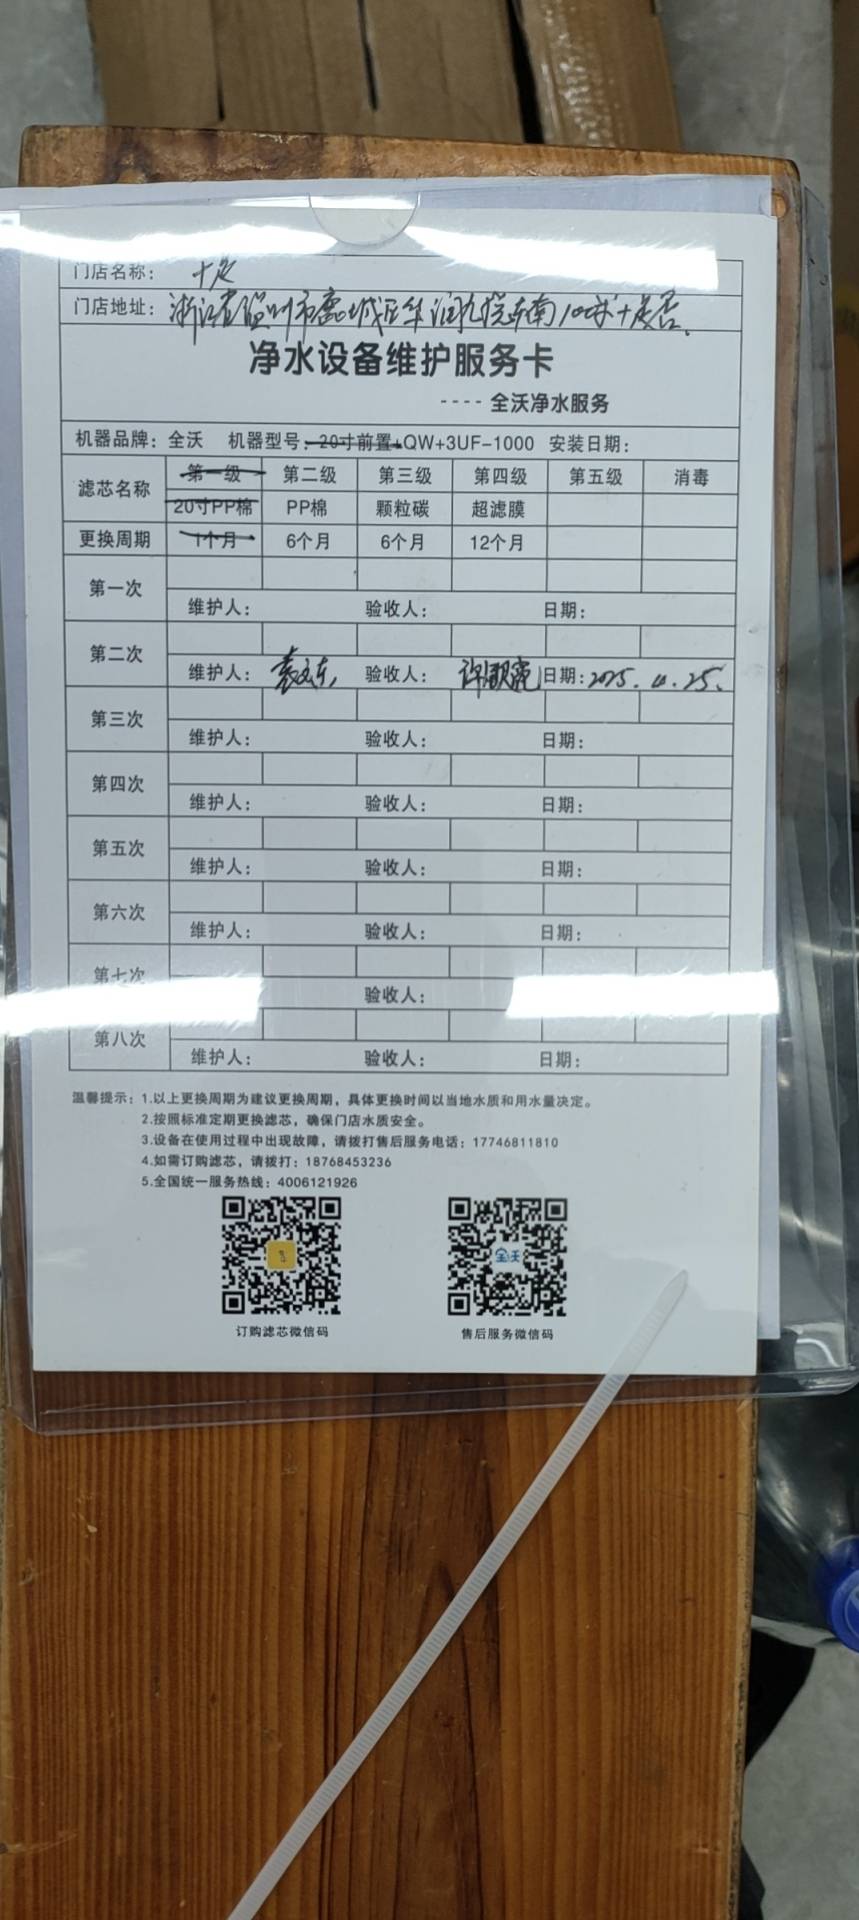 门店名称：
门店地址：浙江省温州市鹿城区华润九悦东南100米十足店
净水设备维护服务卡
----全沃净水服务
机器品牌：全沃 机器型号：20寸前置+QW+3UF-1000 安装日期：
滤芯名称 第一级 第二级 第三级 第四级 第五级 消毒
20寸PP棉 PP棉 颗粒碳 超滤膜
更换周期 1个月 6个月 6个月 12个月
第一次
维护人： 验收人： 日期：
第二次
维护人： 验收人： 日期：2025.4.25.
第三次
维护人： 验收人： 日期：
第四次
维护人： 验收人： 日期：
第五次
维护人： 验收人： 日期：
第六次
维护人： 验收人： 日期：
第七次
验收人：
第八次
维护人： 验收人： 日期：
温馨提示：1.以上更换周期为建议更换周期，具体更换时间以当地水质和用水量决定。
2.按照标准定期更换滤芯，确保门店水质安全。
3.设备在使用过程中出现故障，请拨打售后服务电话：17746811810
4.如需订购滤芯，请拨打：18768453236
5.全国统一服务热线：4006121926
全沃
订购滤芯微信码 售后服务微信码